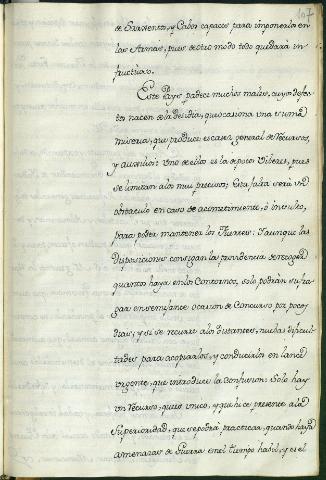 107
de Sarxento, y Cabos capaces para imponerlos en
las Armas, pues de otro modo todo quedará in
fructuoso.
Este Pays padece muchos males, cuyos defec
tos nacen de la desidia, que ocasiona una suma
miseria, que produce escasez general de recursos,
y auxilios: Uno de ellos es la de pocos Viberes, pues
se limitan a los muy precisos; Esta falta será un
obstaculo en caso de acometimiento, ó insulto,
para poder mantener las fuerzas: Y aunque las
Disposiciones consigan las providencias de recoger
quantos haya en los Contornos, solo podrán sufra
gar en semejante ocasion de Concurso por pocos
dias; y si se recurre a los distantes, nuebas dificul
tades para acopiarlos, y conducirlos en lance
urgente, que introduce la Confusion: Solo hay
un recurso, que es unico, y que hice presente a la
Superioridad, que se podrá practicar, quando haya
amenazas de Guerra en el tiempo habil, y es el